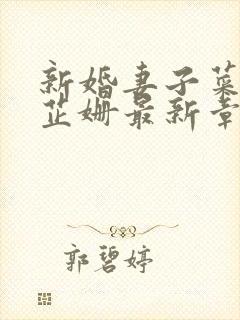 新婚妻子菜
芷姗最新章
郭碧婷